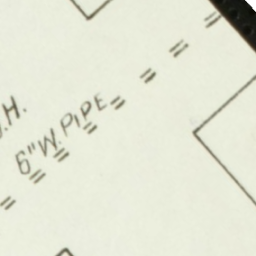 .H.
6" W. PIPE